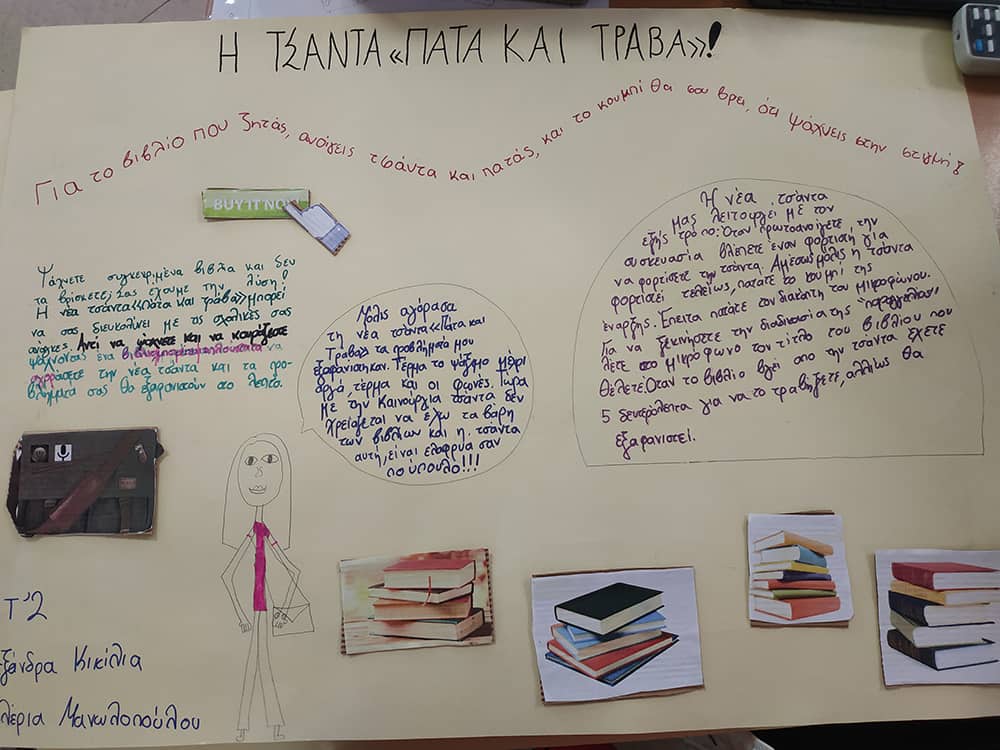 Η ΤΣΑΝΤΑ «ΠΑΤΑ ΚΑΙ ΤΡΑΒΑ»!
Για το βιβλίο που ζητάς, ανοίγεις τσάντα και πατάς, και το κουμπί θα σου βρει, ότι ψάχνεις στην στιγμή!
BUY IT NOW
Ψάχνετε συγκεκριμένα βιβλία και δεν
τα βρίσκετε; Σας έχουμε την λύση!
Η νέα τσάντα «Πάτα και τράβα» μπορεί
να σας διευκολύνει με τις σχολικές σας
ανάγκες. Αντί να ψάχνετε και να κουράζεστε
ψάχνοντας ένα
αγοράσετε την νέα τσάντα και τα προ-
βλήματα σας θα εξαφανιστούν στο λεπτό.
Μόλις αγόρασα
τη νέα τσάντα «Πάτα και
Τράβα» τα προβλήματα μου
εξαφανίστηκαν. Τέρμα το ψάξιμο μέχρι
αργά, τέρμα και οι φωνές. Τώρα
με την καινούργια τσάντα δεν
χρειάζεται να έχω τα βάρη
των βιβλίων και η τσάντα
αυτή, είναι ελαφρυά σαν
πούπουλο!!!
Η νέα τσάντα
μας λειτουργεί με τον
εξής τρόπο: Όταν πρωτοανοίγετε την
συσκευασία βλέπετε έναν φορτιστή για
να φορτίσετε την τσάντα. Αμέσως μόλις η τσάντα
φορτίσει τελείως, πατάτε το κουμπί της
έναρξης. Έπειτα πατάτε τον διακόπτη του μικροφώνου.
Για να ξεκινήσετε την διαδικασία της "παραγγελίας"
λέτε στο μικρόφωνο τον τίτλο του βιβλίου που
θέλετε. Όταν το βιβλίο βγεί απο την τσάντα έχετε
5 δευτερόλεπτα για να το τραβήξετε, αλλιώς θα
εξαφανιστεί.
Τ'2
ξάνδρα Κικίλια
λέρια Μανωλοπούλου